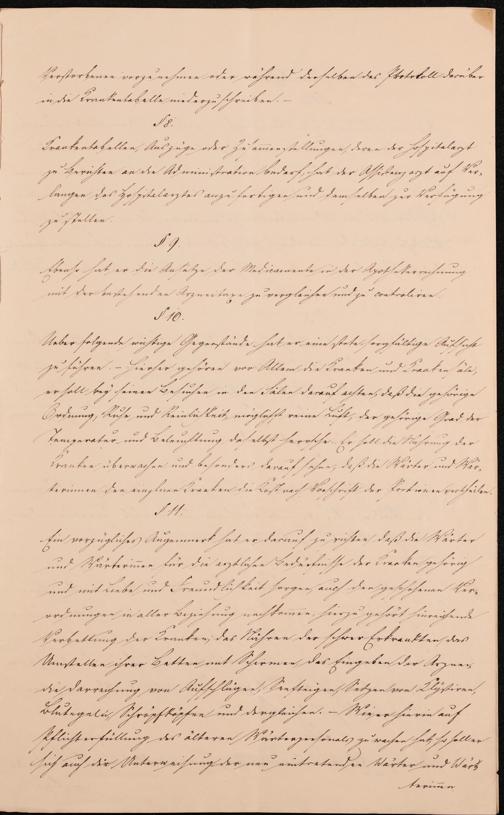 Verstorbenen vorzunehmen oder während derselben das Protokoll darüber
in die Krankentabelle niederzuschreiben. —
§ 8.
Krankentabellen, Auszüge oder Zusammenstellungen, deren der Hospitalarzt
zu Berichten an die Administration bedarf, hat der Assistenzarzt auf Ver-
langen des Hospitalarztes anzufertigen und demselben zur Verfügung
zu stellen.
§ 9.
Ebenso hat er die Ansätze der Medicamente in der Apothekerrechnung
mit der bestehenden Arzneitaxe zu vergleichen und zu controliren.
§ 10.
Ueber folgende wichtige Gegenstände hat er eine stete sorgfältige Aufsicht
zu führen. — Hierher gehören vor Allem die Kranken und Krankensäle,
er soll bey seinen Besuchen in den Sälen darauf achten, daß die gehörige
Ordnung, Ruhe und Reinlichkeit, möglichst reine Luft, der gehörige Grad der
Temperatur und Beleuchtung daselbst herrsche. Er soll die Nahrung der
Kranken überwachen und besonders darauf sehen, daß die Wärter und Wär-
terinnen den einzelnen Kranken die Kost nach Vorschrift der Portionen vertheilen.
§ 11.
Ein vorzügliches Augenmerk hat er darauf zu richten daß die Wärter
und Wärterinnen für die ärztlichen Bedürfnisse der Kranken gehörig
und mit Liebe und Freundlichkeit sorgen, auch den geschehenen Ver-
ordnungen in aller Beziehung nachkommen, hierzu gehört hinreichende
Verbettung der Kranken, das Nähren der schwer Erkrankten, das
Umstellen ihrer Betten mit Schirmen, das Eingeben der Arznei,
die Darreichung von Aufschlägen, Senfteigen, Setzen von Klystiren,
Blutegeln, Schröpfköpfen und dergleichen. — Wie er hierin auf
Pflichterfüllung des älteren Wärterpersonals zu wachen hat, so soll er
sich auch die Unterweisung der neu eintretenden Wärter und Wär-
terinnen